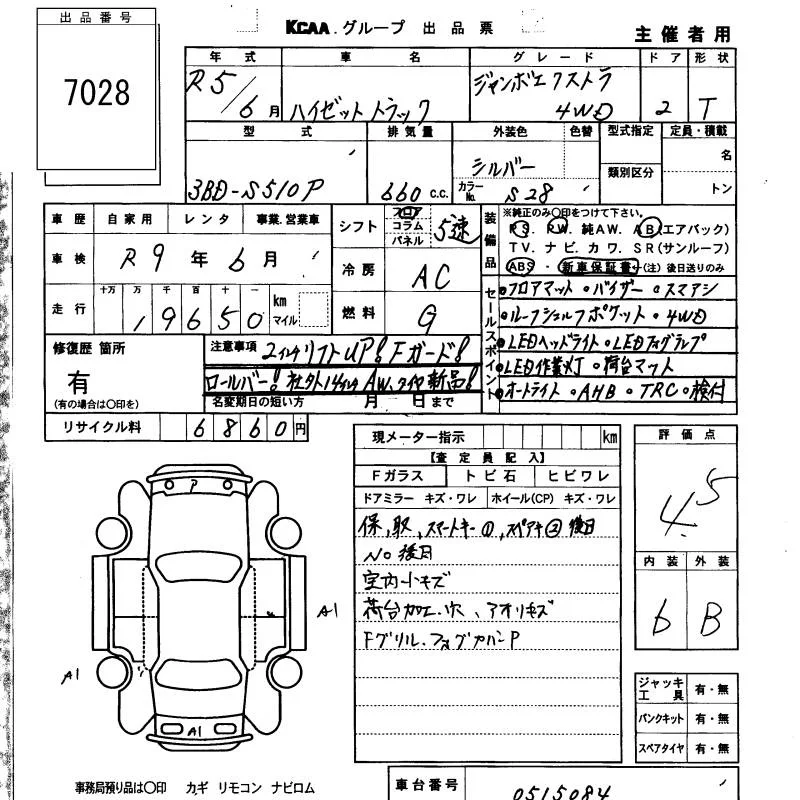 出品番号
7028
KCAA.グループ 出品票
主催者用
年式 車名 グレード ドア 形状
R5/6月 ハイゼットトラック ジャンボエクストラ 4WD 2 T
型式 排気量 外装色 色替 型式指定 定員・積載
3BD-S510P 660c.c. シルバー カラーNo. S28 類別区分 名
トン
車歴 自家用 レンタ 事業.営業車
シフト フロア コラム パネル 5速
装備品 ※純正のみ〇印をつけて下さい。
PS. PW. 純AW. AB(エアバッグ)
TV. ナビ. カワ. SR(サンルーフ)
ABS・新車保証書(注)後日送りのみ
車検 R9年6月
冷房 AC
走行 十万 万 千 百 十 一 km マイル
19650
燃料 G
セールスポイント
・フロアマット・バイザー・スマアシ
・ルーフシェルフポケット・4WD
・LEDヘッドライト・LEDフォグランプ
・LED作業灯・荷台マット
・オートライト・AHB・TRC・検付
修復歴 箇所
有
(有の場合は〇印を)
注意事項 2インチリフトUP!Fガード!
ロールバー!社外14インチAW、タイヤ新品!
名変期日の短い方 月 日まで
リサイクル料 6860円
現メーター指示 km
【査定員記入】
Fガラス トビ石 ヒビワレ
ドアミラー キズ・ワレ ホイール(CP) キズ・ワレ
保、取、スマートキー①、スペアキー②後日
No後日
室内小キズ
荷台加工.穴、アオリキズ
Fグリル.フォグカバーP
評価点
4.5
内装 外装
6 B
P
A1
A1
A1
ジャッキ工具 有・無
パンクキット 有・無
スペアタイヤ 有・無
事務局預り品は〇印 カギ リモコン ナビロム
車台番号 0515084